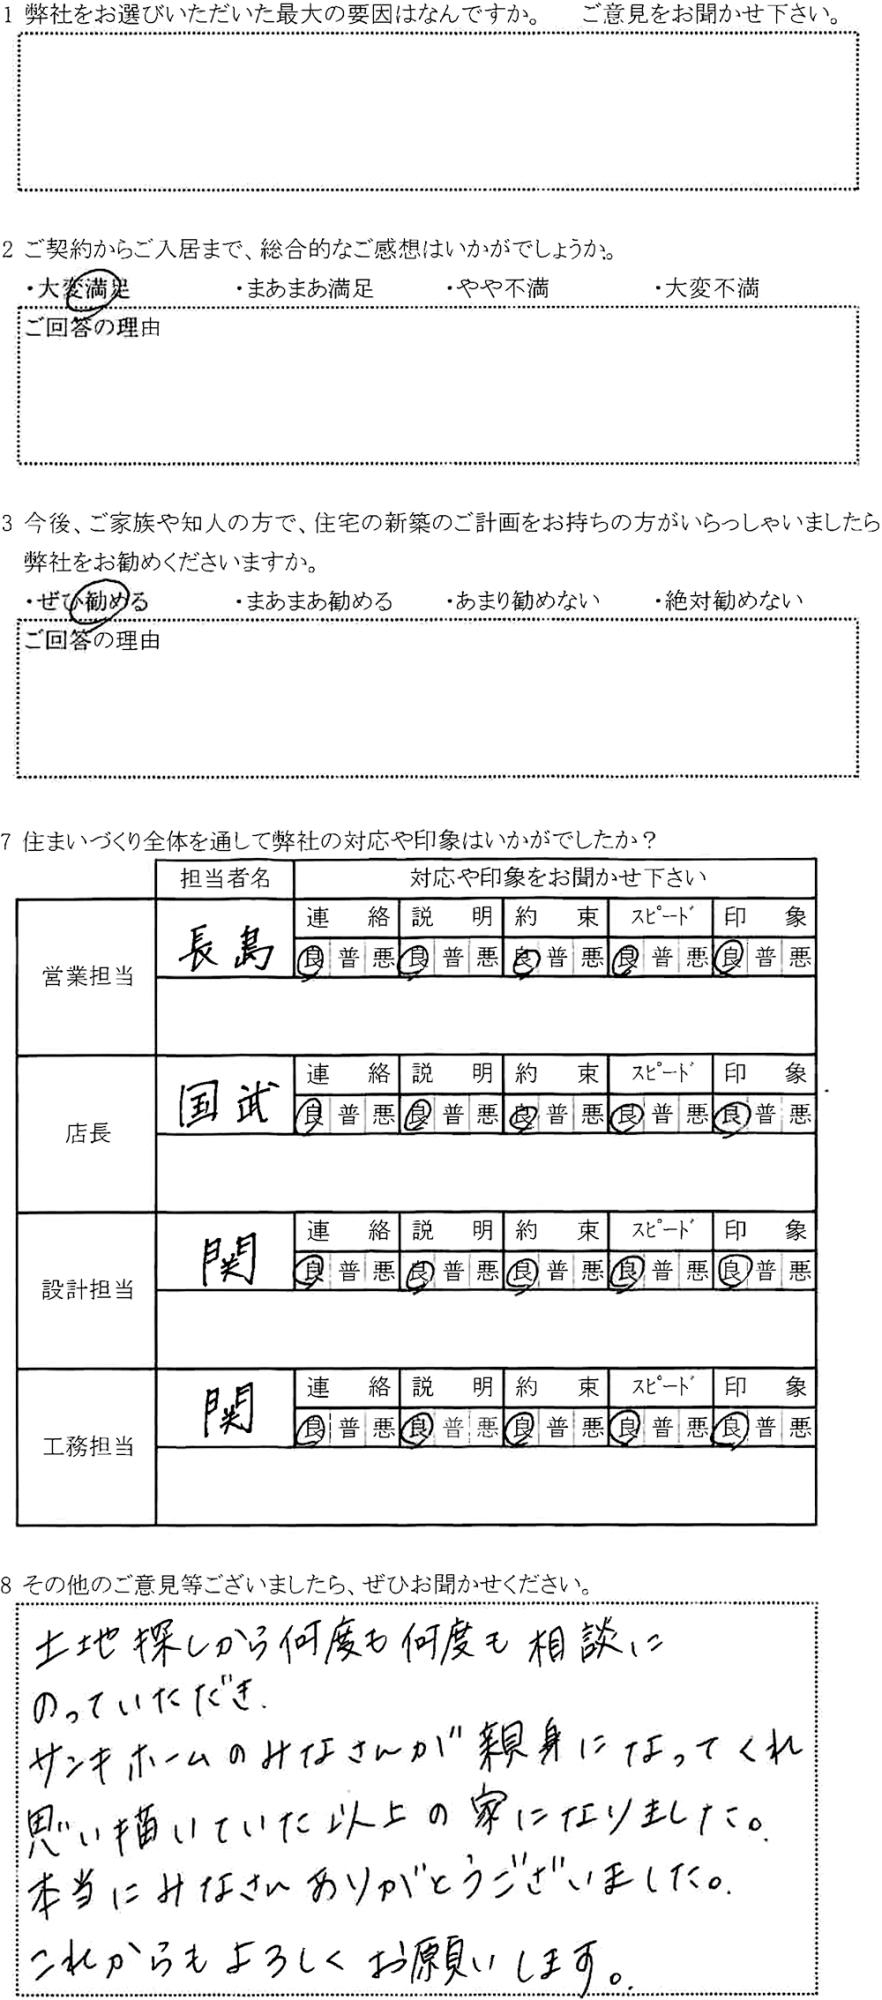 1 弊社をお選びいただいた最大の要因はなんですか。 ご意見をお聞かせ下さい。
2 ご契約からご入居まで、総合的なご感想はいかがでしょうか。
・大変満足 ・まあまあ満足 ・やや不満 ・大変不満
ご回答の理由
3 今後、ご家族や知人の方で、住宅の新築のご計画をお持ちの方がいらっしゃいましたら
弊社をお勧めくださいますか。
・ぜひ勧める ・まあまあ勧める ・あまり勧めない ・絶対勧めない
ご回答の理由
7 住まいづくり全体を通して弊社の対応や印象はいかがでしたか？
担当者名 対応や印象をお聞かせ下さい
営業担当 長島 連絡 説明 約束 スピード 印象
良 普 悪 良 普 悪 良 普 悪 良 普 悪 良 普 悪
店長 国武 連絡 説明 約束 スピード 印象
良 普 悪 良 普 悪 良 普 悪 良 普 悪 良 普 悪
設計担当 関 連絡 説明 約束 スピード 印象
良 普 悪 良 普 悪 良 普 悪 良 普 悪 良 普 悪
工務担当 関 連絡 説明 約束 スピード 印象
良 普 悪 良 普 悪 良 普 悪 良 普 悪 良 普 悪
8 その他のご意見等ございましたら、ぜひお聞かせください。
土地探しから何度も何度も相談に
のっていただき、
サンキホームのみなさんが親身になってくれ
思い描いていた以上の家になりました。
本当にみなさんありがとうございました。
これからもよろしくお願いします。